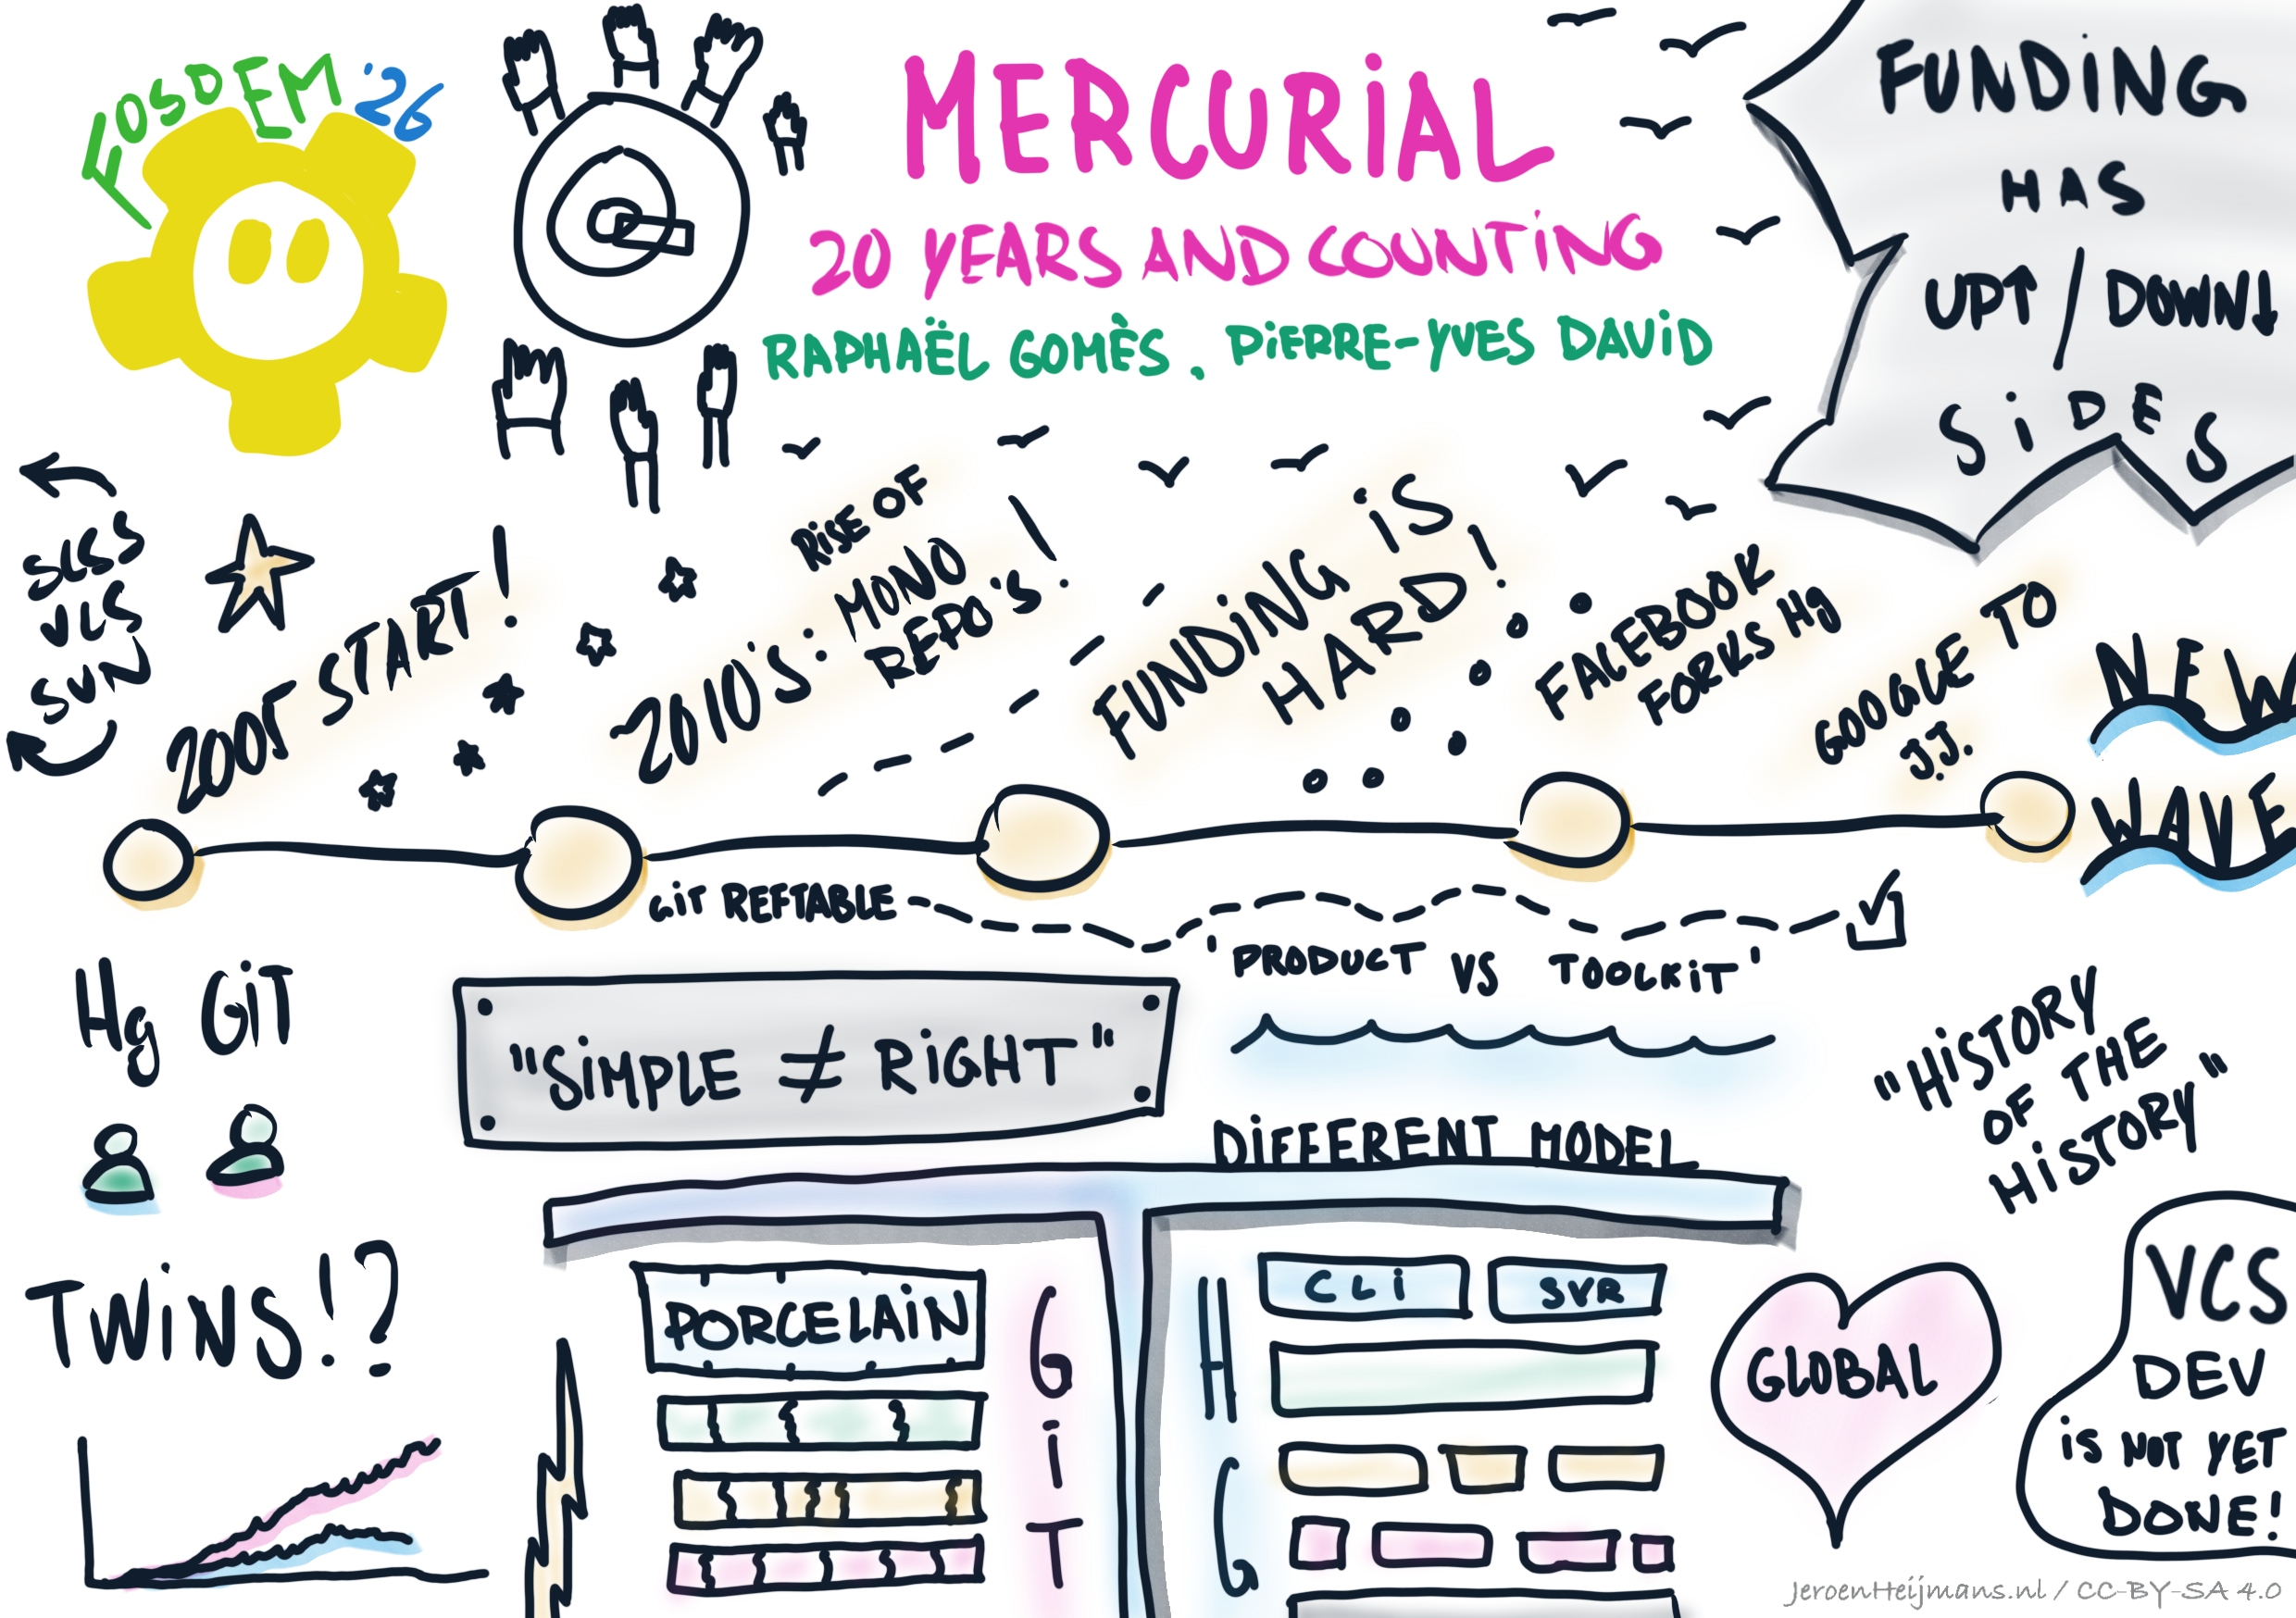 FOSDEM '26
MERCURIAL
20 YEARS AND COUNTING
RAPHAËL GOMÈS. PIERRE-YVES DAVID
FUNDING
HAS
UP↑ / DOWN↓
SIDES
SCCS
VCS
SUN
2005 START!
2010'S:
RISE OF
MONO
REPO'S!
FUNDING IS
HARD!
FACEBOOK
FORKS Hg
GOOGLE TO
J.J.
NEW
WAVE
GIT REFTABLE
'PRODUCT VS TOOLKIT'
Hg GIT
TWINS!?
"SIMPLE ≠ RIGHT"
DIFFERENT MODEL
"HISTORY
OF THE
HISTORY"
PORCELAIN
GIT
HG
CLI
SVR
GLOBAL
VCS
DEV
IS NOT YET
DONE!
JeroenHeijmans.nl / CC-BY-SA 4.0